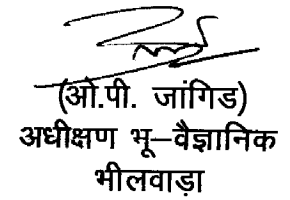 (ओ.पी. जांगिड)
अधीक्षण भू–वैज्ञानिक
भीलवाड़ा